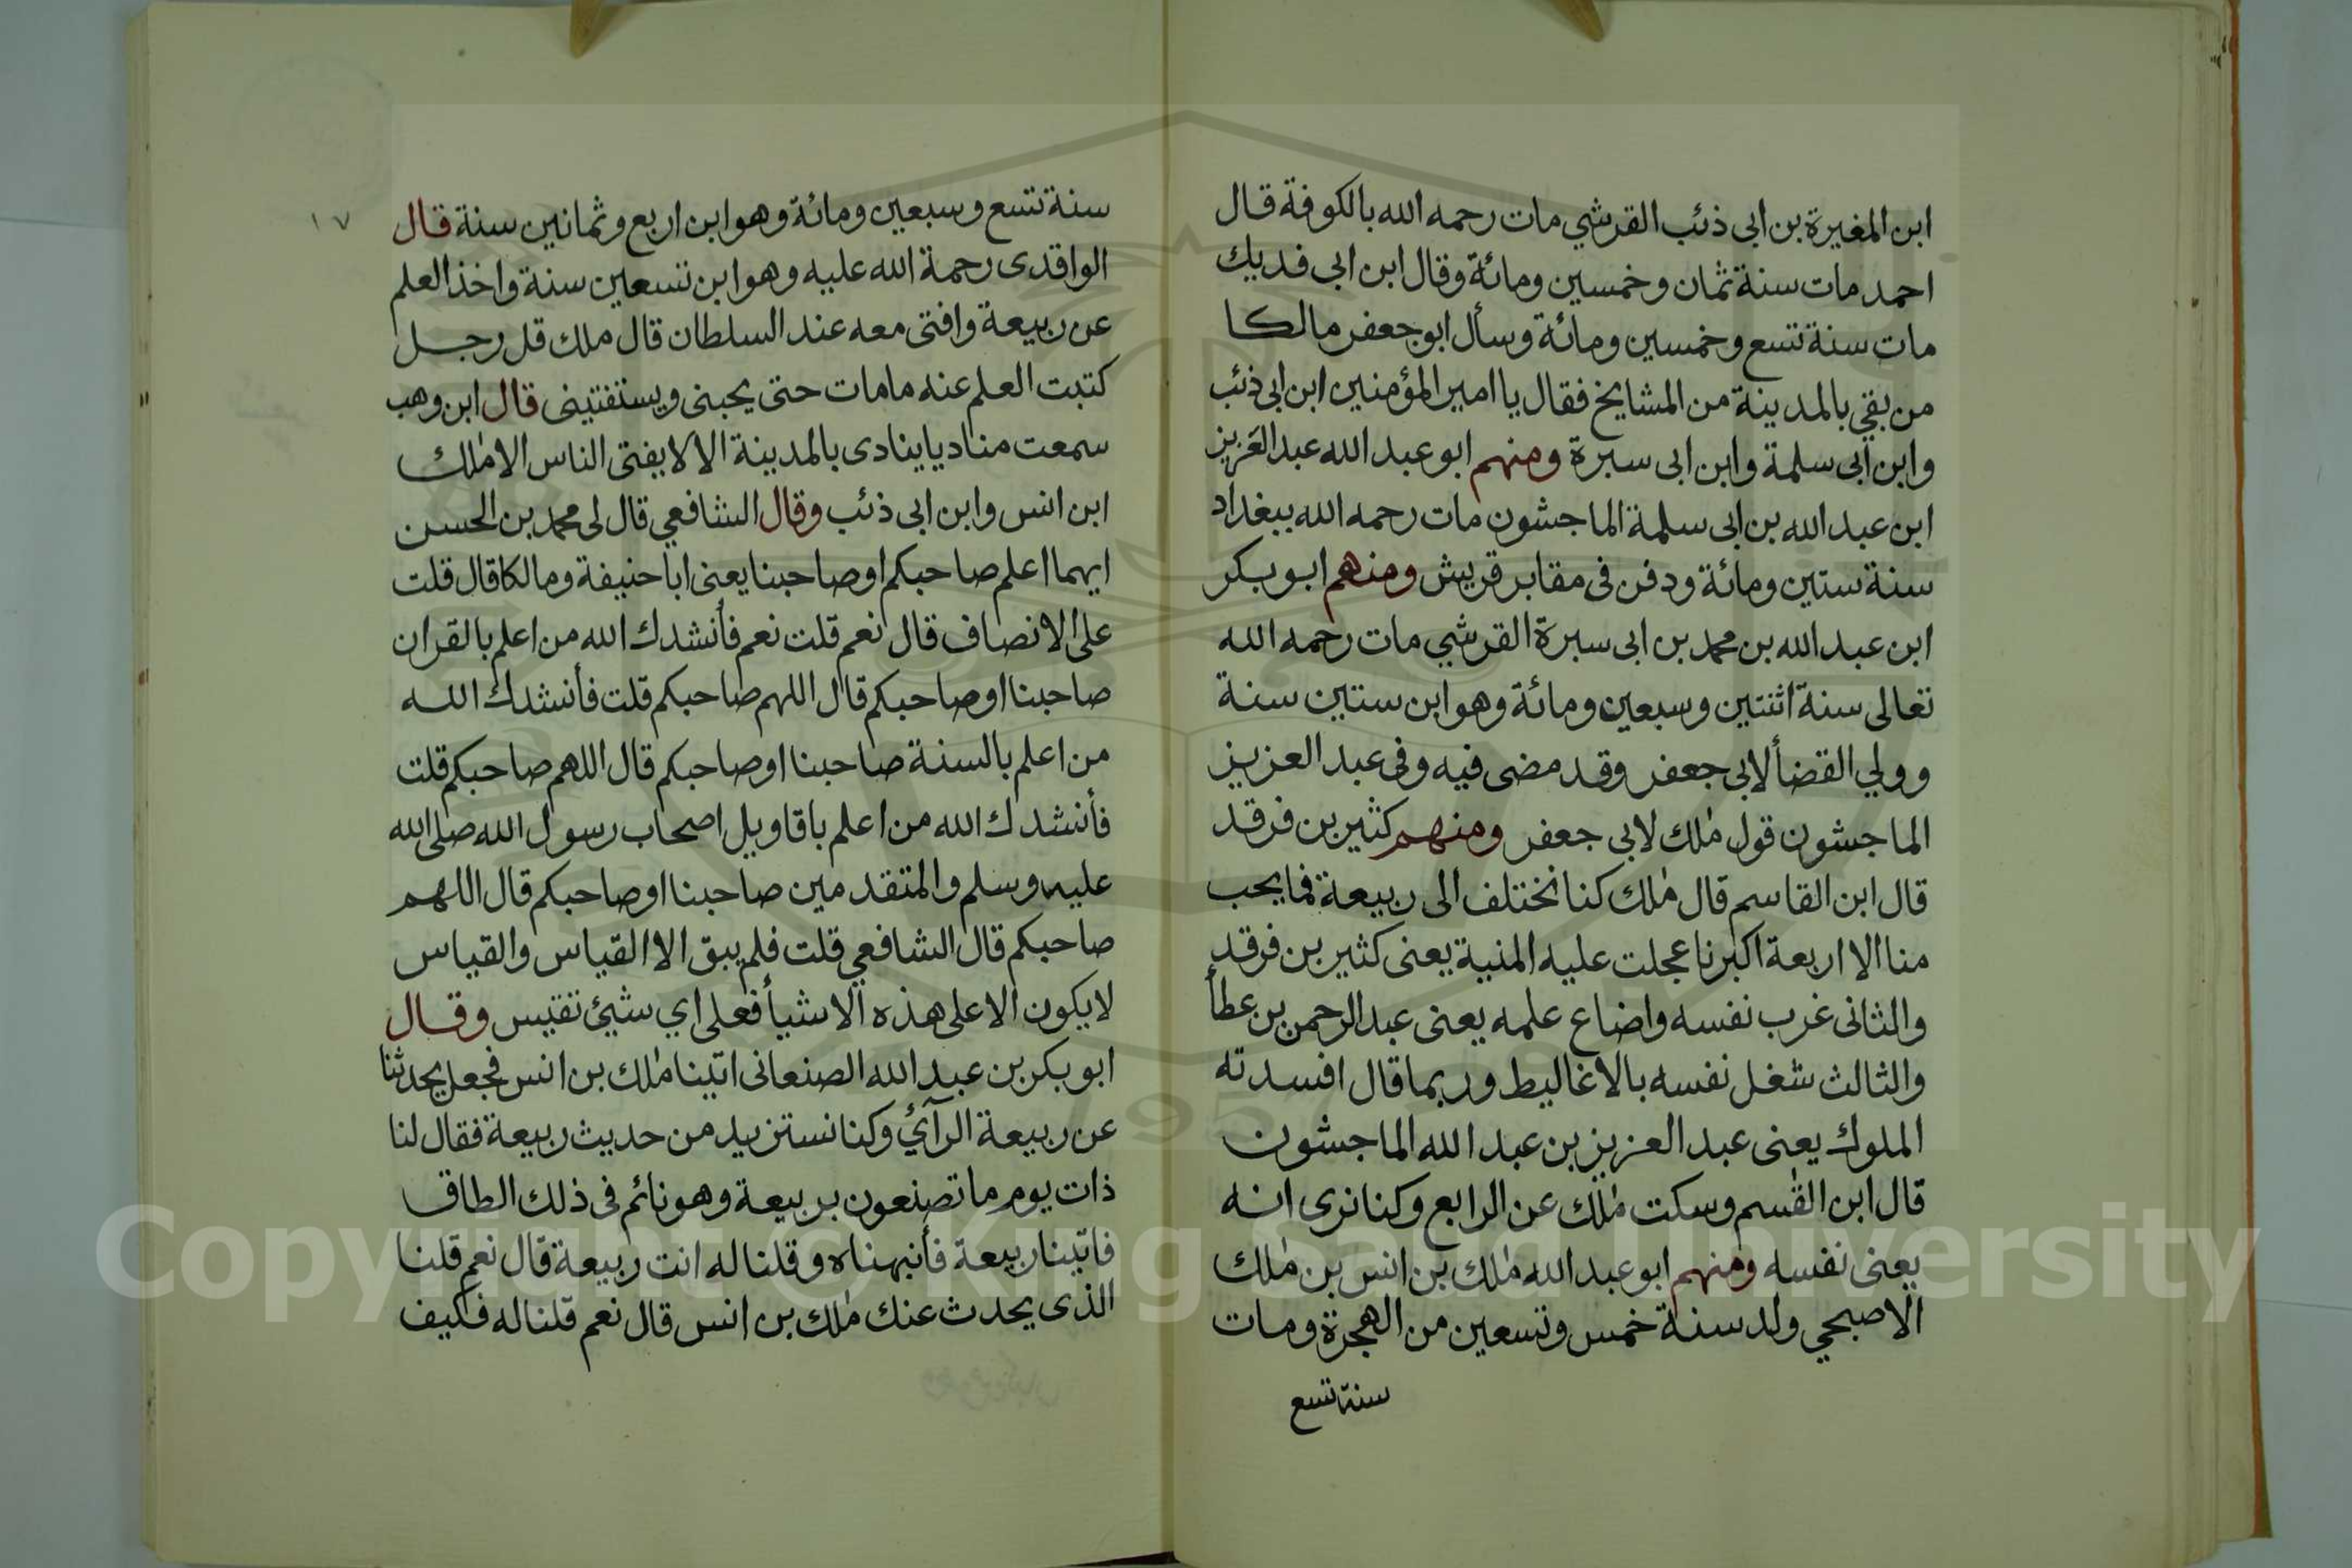 ابن المغيرة بن ابى ذئب القرشي مات رحمه الله بالكوفة قال
احمد مات سنة ثمان وخمسين ومائة وقال ابن ابى فديك
مات سنة تسع وخمسين ومائة وسأل ابو جعفر مالكا
من بقي بالمدينة من المشايخ فقال يا امير المؤمنين ابن ابى ذئب
وابن ابى سلمة وابن ابى سبرة ومنهم ابو عبد الله عبد العزيز
ابن عبد الله بن ابى سلمة الماجشون مات رحمه الله ببغداد
سنة ستين ومائة ودفن فى مقابر قريش ومنهم ابو بكر
ابن عبد الله بن محمد بن ابى سبرة القرشي مات رحمه الله
تعالى سنة اثنتين وسبعين ومائة وهو ابن ستين سنة
وولي القضأ لابى جعفر وقد مضى فيه وفى عبد العزيز
الماجشون قول مٰلك لابى جعفر ومنهم كثير بن فرقد
قال ابن القاسم قال مٰلك كنا نختلف الى ربيعة فما يحب
منا الا اربعة اكبرنا عجلت عليه المنية يعنى كثير بن فرقد
والثانى غرب نفسه واضاع علمه يعنى عبد الرحمن بن عطأ
والثالث شغل نفسه بالاغاليط وربما قال افسدته
الملوك يعنى عبد العزيز بن عبد الله الماجشون
قال ابن القٰسم وسكت مٰلك عن الرابع وكنا نرى انه
يعنى نفسه ومنهم ابو عبد الله مٰلك بن انس بن مٰلك
الاصبحي ولد سنة خمس وتسعين من الهجرة ومات
سنة تسع
١٧
سنة تسع وسبعين ومائة وهو ابن اربع وثمانين سنة قال
الواقدى رحمة الله عليه وهو ابن تسعين سنة واخذ العلم
عن ربيعة وافتى معه عند السلطان قال ملك قل رجل
كتبت العلم عنه مامات حتى يحبنى ويستفتينى قال ابن وهب
سمعت مناديا ينادى بالمدينة الا لا يفتى الناس الا مٰلك
ابن انس وابن ابى ذئب وقال الشافعي قال لى محمد بن الحسن
ايهما اعلم صاحبكم او صاحبنا يعنى ابا حنيفة ومالكا قال قلت
على الانصاف قال نعم قلت نعم فأنشدك الله من اعلم بالقران
صاحبنا او صاحبكم قال اللهم صاحبكم قلت فأنشدك الله
من اعلم بالسنة صاحبنا او صاحبكم قال اللهم صاحبكم قلت
فأنشدك الله من اعلم باقاويل اصحاب رسول الله صلى الله
عليه وسلم والمتقدمين صاحبنا او صاحبكم قال اللهم
صاحبكم قال الشافعي قلت فلم يبق الا القياس والقياس
لا يكون الا على هذه الاشيأ فعلى اي شيئ تقيس وقال
ابو بكر بن عبد الله الصنعانى اتينا مٰلك بن انس فجعل يحدثنا
عن ربيعة الرآئ وكنا نستزيد من حديث ربيعة فقال لنا
ذات يوم ما تصنعون بربيعة وهو نائم فى ذلك الطاق
فاتينا ربيعة فأنبهناه وقلنا له انت ربيعة قال نعم قلنا
الذى يحدث عنك مٰلك بن انس قال نعم قلنا له فكيف
Copyright © King Saud University
1957